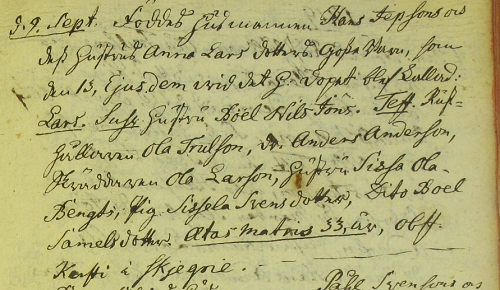 d. 9. Sept. Föddes Husmannen Hans Jepsons och
dess Hustrus Anna Lars dotters Gosse Barn, som
den 13, Ejusdem wid det H. Dopet blef kallad:
Lars. Susc. Hustru Boel Nils Töns. Test. Rus-
hållaren Ola Trulson, dr. Anders Anderson,
Skräddaren Ola Larson, Hustru Sissa Ola-
Bengts, Pig. Sissela Svensdotter, Dito Boel
Samelsdotter. Ætas matris 33, år, obst.
i Skjegrie.
Påhl Svensons och